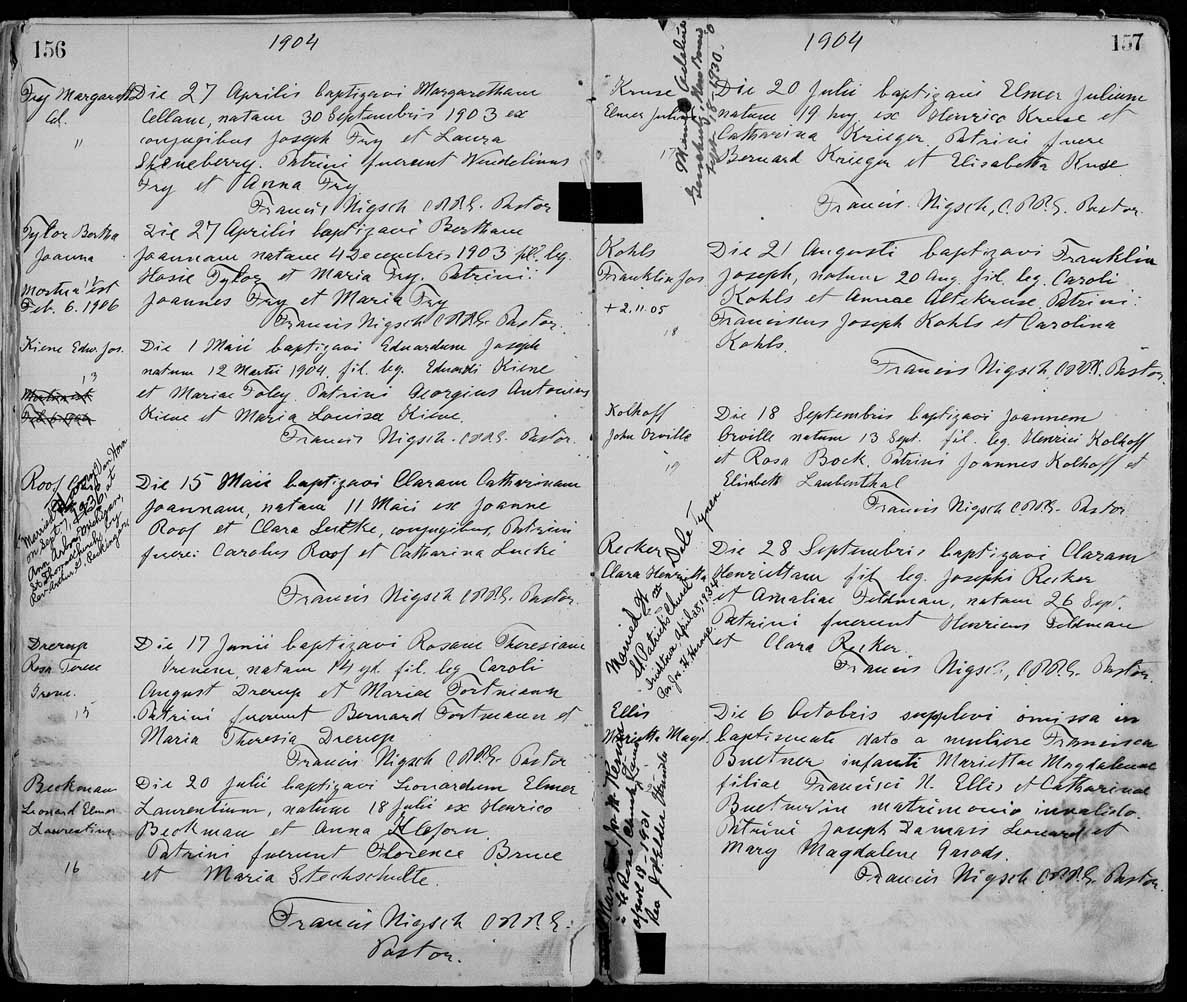 156
1904
Fry Margareth
Cel.
"
Die 27 Aprilis baptizavi Margaretham
Cellam, natam 30 Septembris 1903 ex
conjugibus Joseph Fry et Laura
Sheneberry. Patrini fuerunt Wendelinus
Fry et Anna Fry
Francis Nigsch C.PP.S. Pastor
Tylor Bertha
Joanna
Mortua est
Feb. 6. 1906
Die 27 Aprilis baptizavi Bertham
Joannam natam 4 Decembris 1903 fil. leg.
Hosie Tylor et Maria Fry. Patrini:
Joannes Fry et Maria Fry
Francis Nigsch C.PP.S. Pastor.
Kiene Edw. Jos.
13
Mortua est
Feb 6 1906
Die 1 Maii baptizavi Eduardum Joseph
natum 12 Martii 1904, fil. leg. Eduardi Kiene
et Mariae Foley. Patrini Georgius Antonius
Kiene et Maria Louisa Kiene.
Francis Nigsch C.PP.S. Pastor.
Roof
Married Harvey Van Horn
on Sept. 7, 1936, at
Ann Arbor Michigan,
St Thomas Church by
Rev. Arthur
Die 15 Maii baptizavi Claram Catharinam
Joannam, natam 11 Maii ex Joanne
Roof et Clara Luetke, conjugibus, Patrini
fuere: Carolus Roof et Catharina Lucke
Francis Nigsch C.PP.S. Pastor.
Drerup
Rosa Terese
Irene.
15
Die 17 Junii baptizavi Rosam Theresiam
Irenem, natam 14 ejd. fil. leg. Caroli
August Drerup et Mariae Fortmann
Patrini fuerunt Bernard Fortmann et
Maria Theresia Drerup
Francis Nigsch C.PP.S. Pastor
Beckman
Leonard Elmer
Laurentius
16
Die 20 Julii baptizavi Leonardum Elmer
Laurentium, natum 18 Julii ex Henrico
Beckman et Anna Kleforn.
Patrini fuerunt Florence Bruce
et Maria Stechschulte.
Francis Nigsch C.PP.S.
Pastor.
157
1904
Kruse
Elmer Julius
17
Married Adeline
Sept. 18-1930.
Die 20 Julii baptizavi Elmer Julium
natum 19 huj. ex Henrico Kruse et
Catharina Krieger, Patrini fuere
Bernard Krieger et Elisabetta Kruse.
Francis Nigsch, C.PP.S. Pastor.
Kohls
Franklin Jos
+ 2.11.05
18
Die 21 Augusti baptizavi Franklin
Joseph, natum 20 Aug. fil. leg. Caroli
Kohls et Annae Altekruse, Patrini:
Franciscus Joseph Kohls et Carolina
Kohls.
Francis Nigsch, C.PP.S. Pastor.
Kolhoff
John Orville
19
Die 18 Septembris baptizavi Joannem
Orville natum 13 Sept. fil. leg. Henrici Kolhoff
et Rosa Bock. Patrini Joannes Kolhoff et
Elisabeth Laubenthal
Francis Nigsch C.PP.S. Pastor
Recker
Clara Henrietta
Married W. Dale Tyner
St Patricks Church
April 25, 1934
Die 28 Septembris baptizavi Claram
Henriettam fil leg. Josephi Recker
et Amaliae Feldman, natam 26 Sept.
Patrini fuerunt Henricus Feldman
et Clara Recker.
Francis Nigsch, C.PP.S. Pastor.
Ellis
Marietta Magd.
Married
St Rose Church Lima
April 8-1931
Die 6 Octobris supplevi omissa in
baptismate dato a muliere Francisca
Buetner infanti Mariettae Magdalenae
filiae Francisci N. Ellis et Catharinae
Buetner in matrimonio invalido.
Patrini Joseph Damais Leonard et
Mary Magdalene
Francis Nigsch C.PP.S. Pastor.